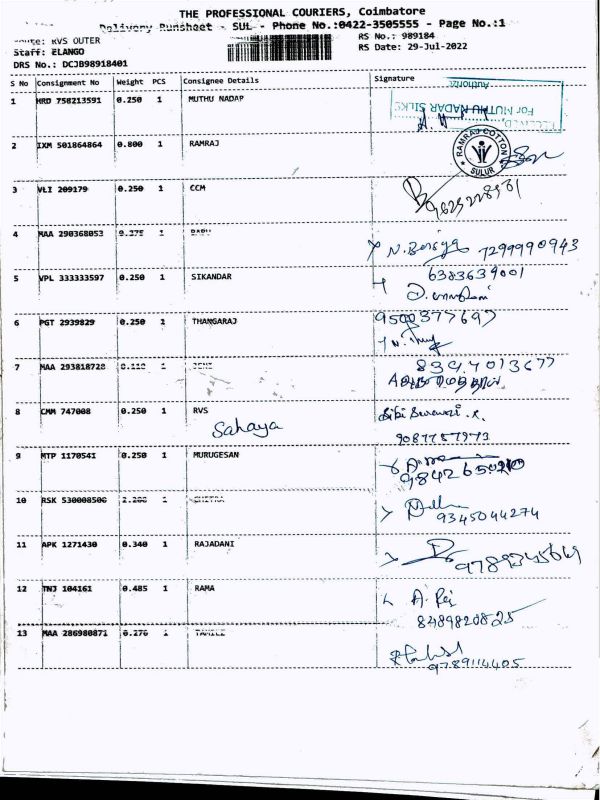 THE PROFESSIONAL COURIERS, Coimbatore
Delivery Runsheet - SUL - Phone No.:0422-3505555 - Page No.:1
Route: RVS OUTER
RS No.: 989184
Staff: ELANGO
RS Date: 29-Jul-2022
DRS No.: DCJB98918401
S No Consignment No Weight PCS Consignee Details Signature
1 HRD 758213591 0.250 1 MUTHU NADAP
RECEIVED
For MUTHU NADAR SILKS
2 IXM 501864864 0.800 1 RAMRAJ
RAMRAJ COTTON
SULUR
3 VLI 209179 0.250 1 CCM
4 MAA 290368053 0.275 1 BABU
7299990943
5 VPL 333333597 0.250 1 SIKANDAR
6383639001
6 PGT 2939829 0.250 1 THANGARAJ
9500377697
7 MAA 293818728 0.110 1 JENI
8 CMM 747008 0.250 1 RVS
Sahaya
9 MTP 1170541 0.250 1 MURUGESAN
10 RSK 530008500 2.200 1 CHITRA
9345044274
11 APK 1271430 0.340 1 RAJADANI
12 TNJ 104161 0.485 1 RAMA
8489820825
13 MAA 286980871 0.270 1
9789114405